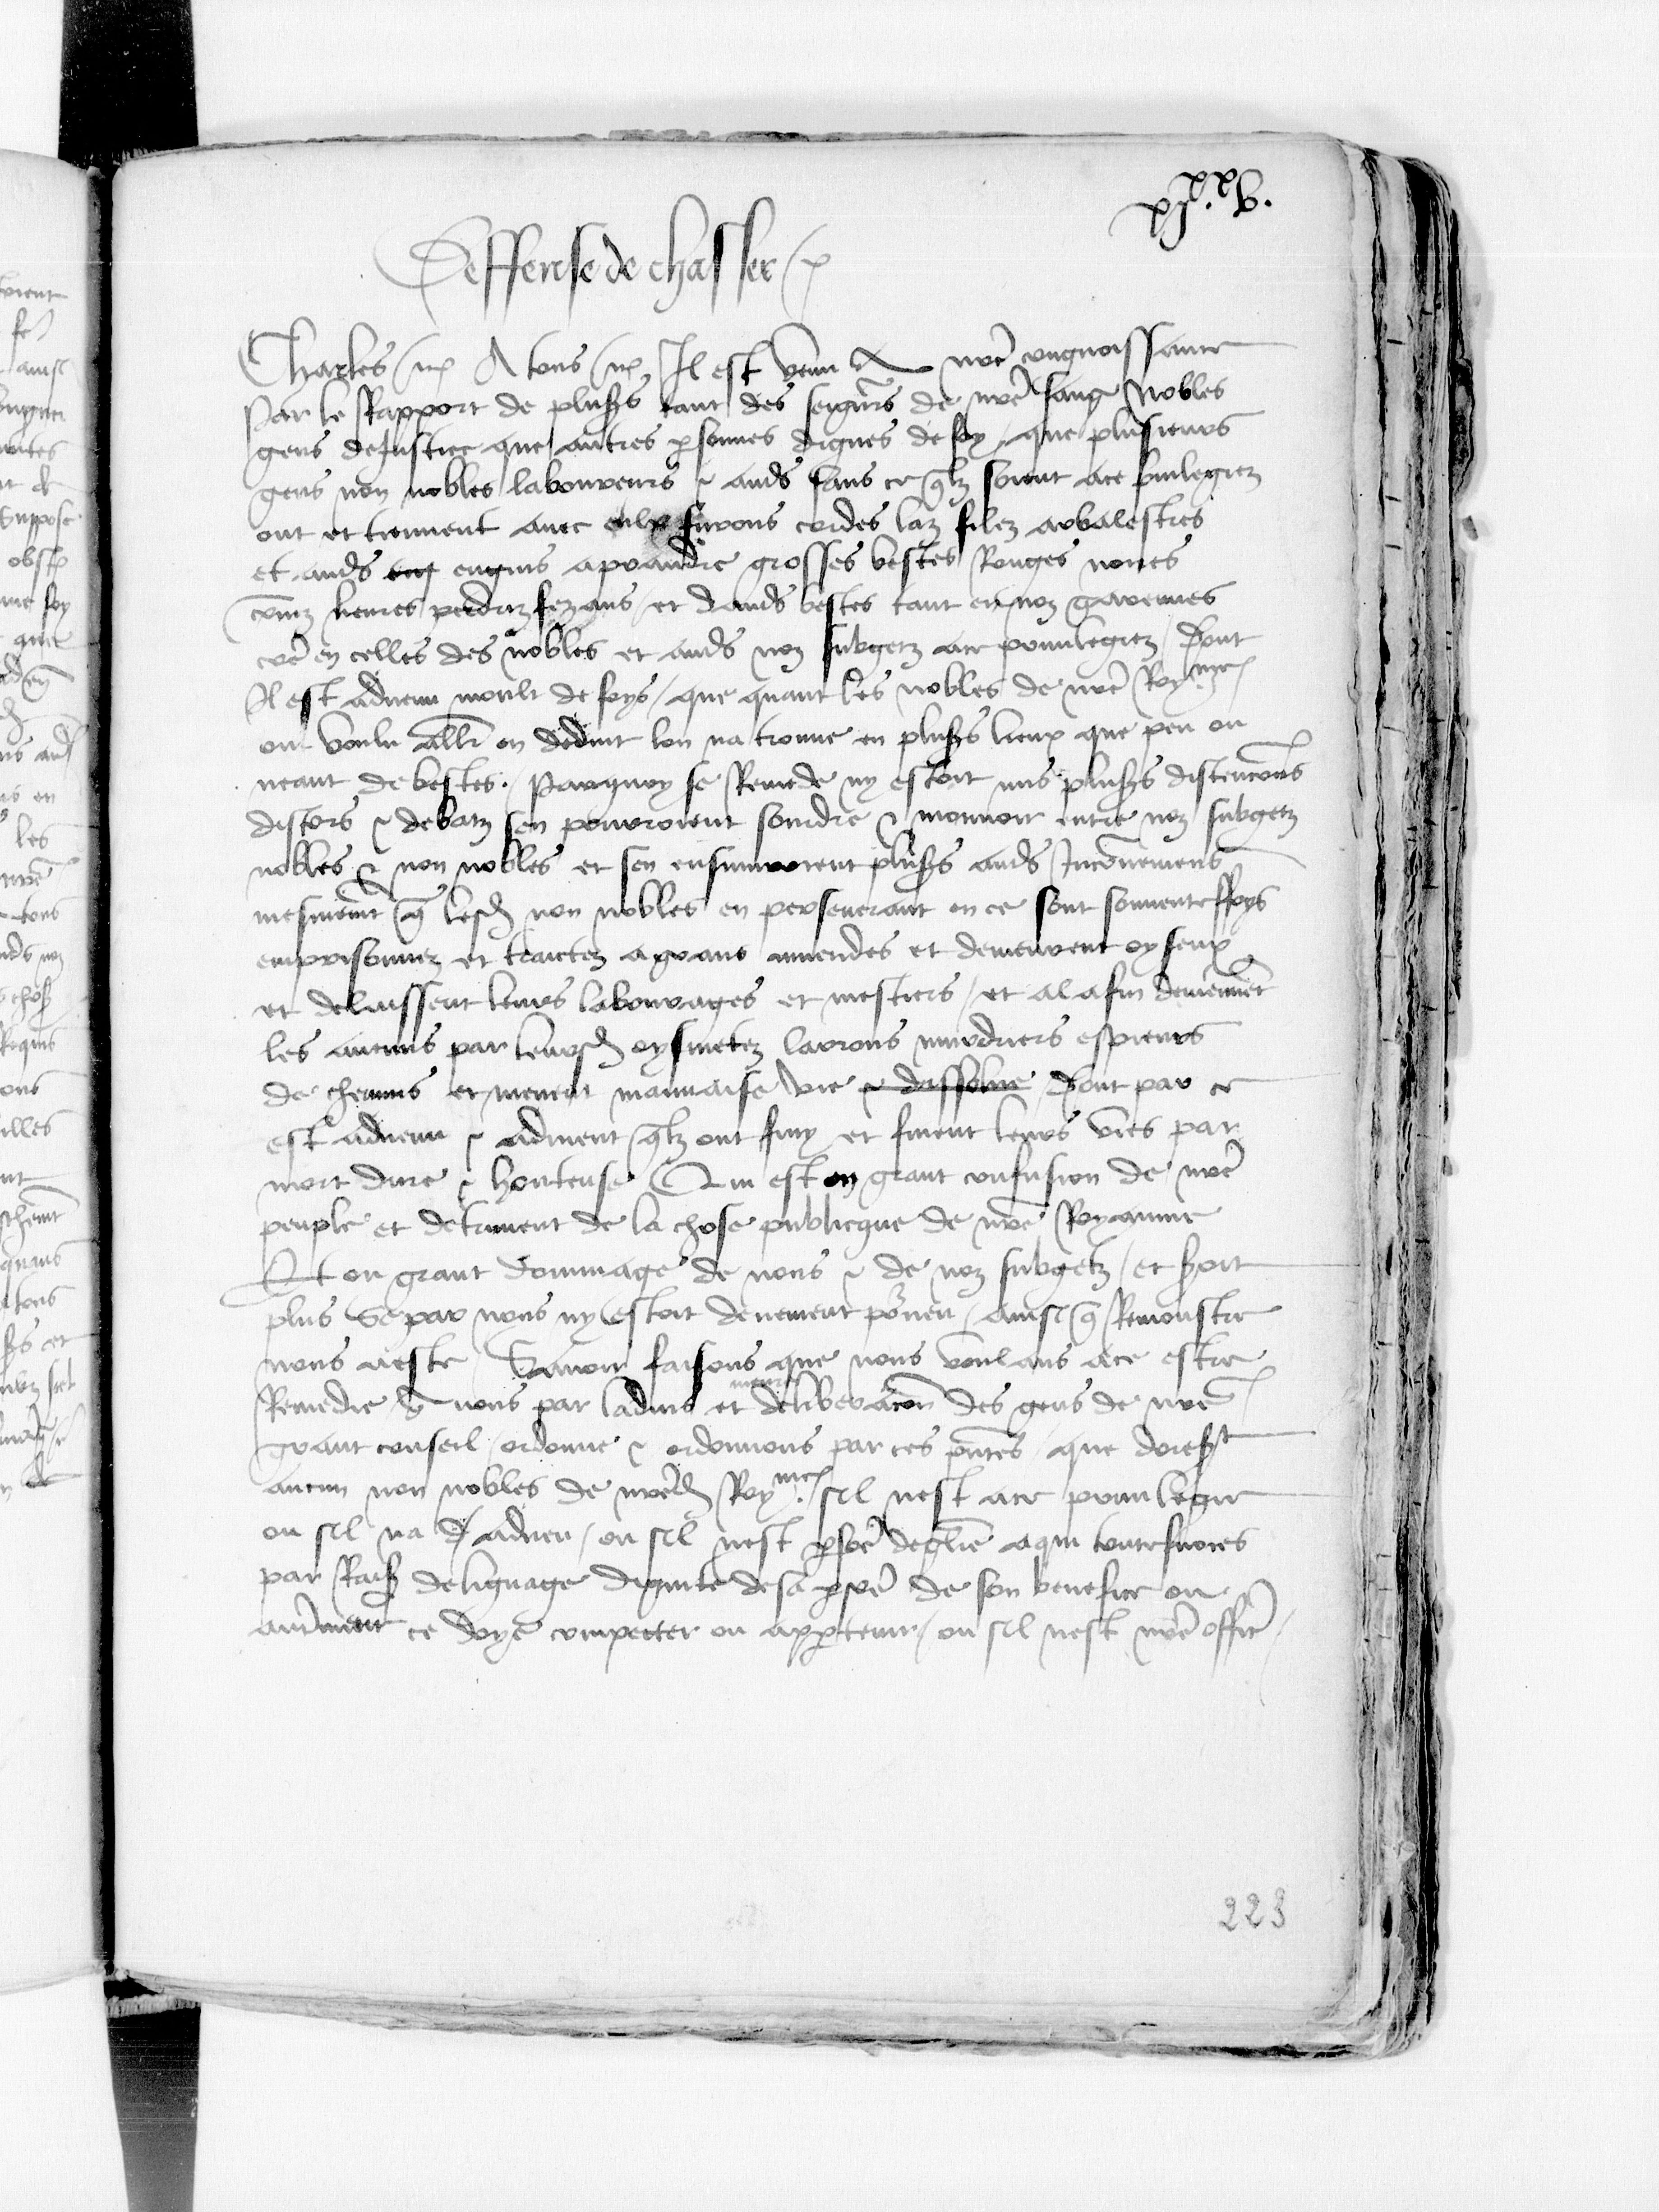 Deffense de chasser
Charles etc A tous etc Il est venu a nre congnoissance
Par le Rapport de plus's tant des seign'rs de nre sang Nobles
gens de Justice que autres p'sonnes dignes de foy / que plusieurs
gens non nobles laboureurs & au's sans ce q'lz soient ace privilegiez
ont et tiennent avec eulx furons cordes laz filez arbalestres
et au's eng engins aprandre grosses bestes Rouges noires
co'nnilz lievres perdriz fezans / et dau's bestes tant en noz garennes
co'e en celles des nobles et au's noz subgetz ace privilegiez / Dont
Il est advenu moult de foys / que quant les nobles de nre Roy'me
ont voulu aller en deduit lon na trouve en plus's lieux que peu ou
neant de bestes / Parquoy se Remede ny estoit mis plus's discencions
discors & debatz sen pourroient sourdre & mouvoir entre noz subgetz
nobles & non nobles et sen ensuivroient plus's au's Inconveniens
mesment q' lesd' non nobles en perseverant en ce sont souventeffoys
emprisonnez et traictez a grans amendes et demeurent oyseux
et delaissent leurs labourages et mestiers / et alafin deviennent
les aucuns par leursd' oysivetez larrons murdriers espieurs
de chemins et menent mauvaise vie & dissolue / Dont par ce
est advenu & advient q'lz ont finy et finent leurs vies par
mort dure & honteuse Qui est en grant confusion de nre
peuple et detriment de la chose publicque de nre Royaume
Et en grant dommage de nous & de noz subgetz / et soit
plus se par nous ny estoit deuement pourveu / ainsi q' Remonstre
nous aeste / Savoir faisons que nous voulans ace estre
Remedie / nous par ladvis et meure deliberacon des gens de nre
grant conseil / ordonne & ordonnons par ces p'ntes / que dores't
aucun non nobles de nred' Roy'me sil nest ace privilegie
ou sil na adveu / ou sil nest p'so'e deglise aqui toutesvoies
par Rais' de lignage dignite desa p'so'e de son benefice ou
aut'ment ce doye competter ou app'tenir / ou sil nest nre offic'
223